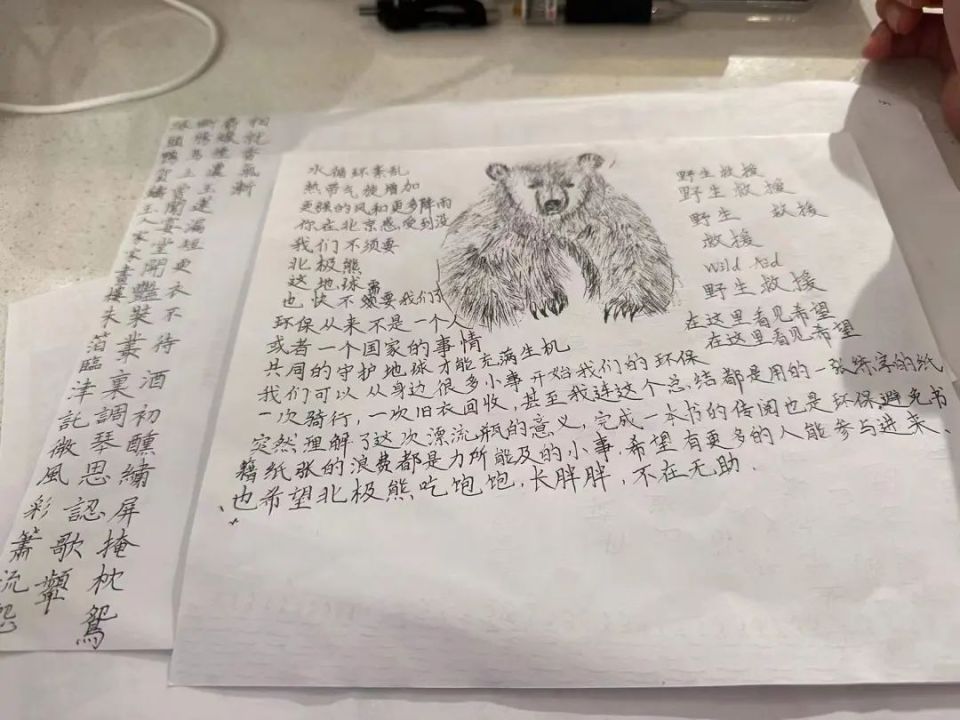 相就香氣漸
麝煙濃王蓮漏短更衣不待酒初醺繡屏掩枕鴛
斷腸馬上當聞宴堂開豔裝叢裏調琴思認歌顰
綠頭鴨賀鑄王人家畫樓朱箔臨津託微風彩簫流怨
水循环紊乱
热带气旋增加
更强的风和更多降雨
你在北京感受到没
我们不须要
北极熊
这地球需
也快不须要我们了
环保从来不是一个人
或者一个国家的事情
共同的守护地球才能充满生机
我们可以从身边很多小事开始我们的环保
一次骑行，一次旧衣回收，甚至我连这个总结都是用的一张练字的纸
突然理解了这次漂流瓶的意义，完成一本书的传阅也是环保避免书
籍纸张的浪费都是力所能及的小事，希望有更多的人能参与进来、
也希望北极熊吃饱饱，长胖胖，不在无助．
野生救援
野生救援
野生 救援
救援
Wild Aid
野生救援
在这里看见希望
在这里看见希望